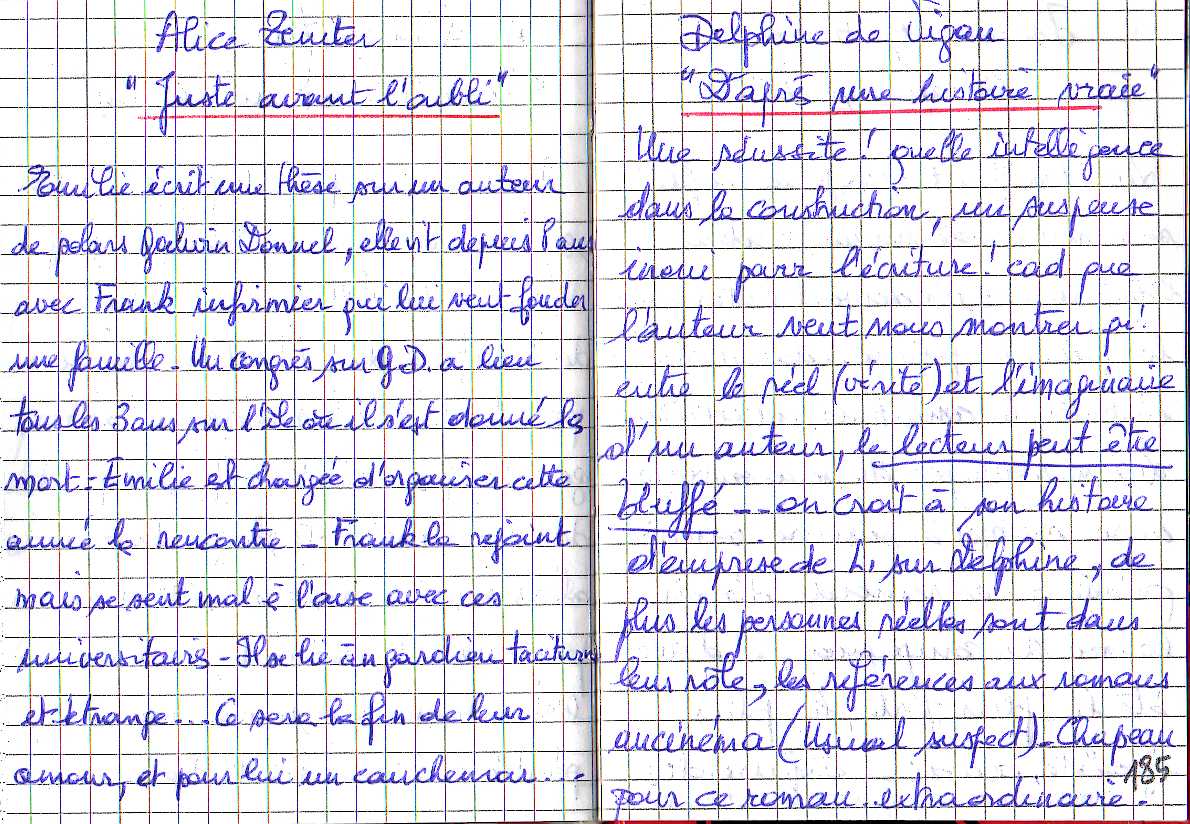 Alice Zeniter
"Juste avant l'oubli"
Emilie écrit une thèse sur un auteur
de polars Galwin Donnel, elle vit depuis 8 ans
avec Frank infirmier qui lui veut fonder
une famille - Un congrès sur G.D. a lieu
tous les 3 ans sur l'île où il s'est donné la
mort - Emilie est chargée d'organiser cette
année la rencontre - Frank la rejoint
mais se sent mal à l'aise avec ces
universitaires - Il se lie à un gardien taciturne
et étrange... Ce sera la fin de leur
amour, et pour lui un cauchemar...
Delphine de Vigan
"D'après une histoire vraie"
Une réussite ! quelle intelligence
dans la construction, un suspense
inoui par l'écriture ! cad que
l'auteur veut nous montrer qu'
entre le réel (vérité) et l'imaginaire
d'un auteur, le lecteur peut être
bluffé -- on croit à son histoire
d'emprise de L. sur Delphine, de
plus les personnes réelles sont dans
leur rôle, les références aux romans
au cinéma (Usual suspect) - Chapeau
pour ce roman extraordinaire.
185